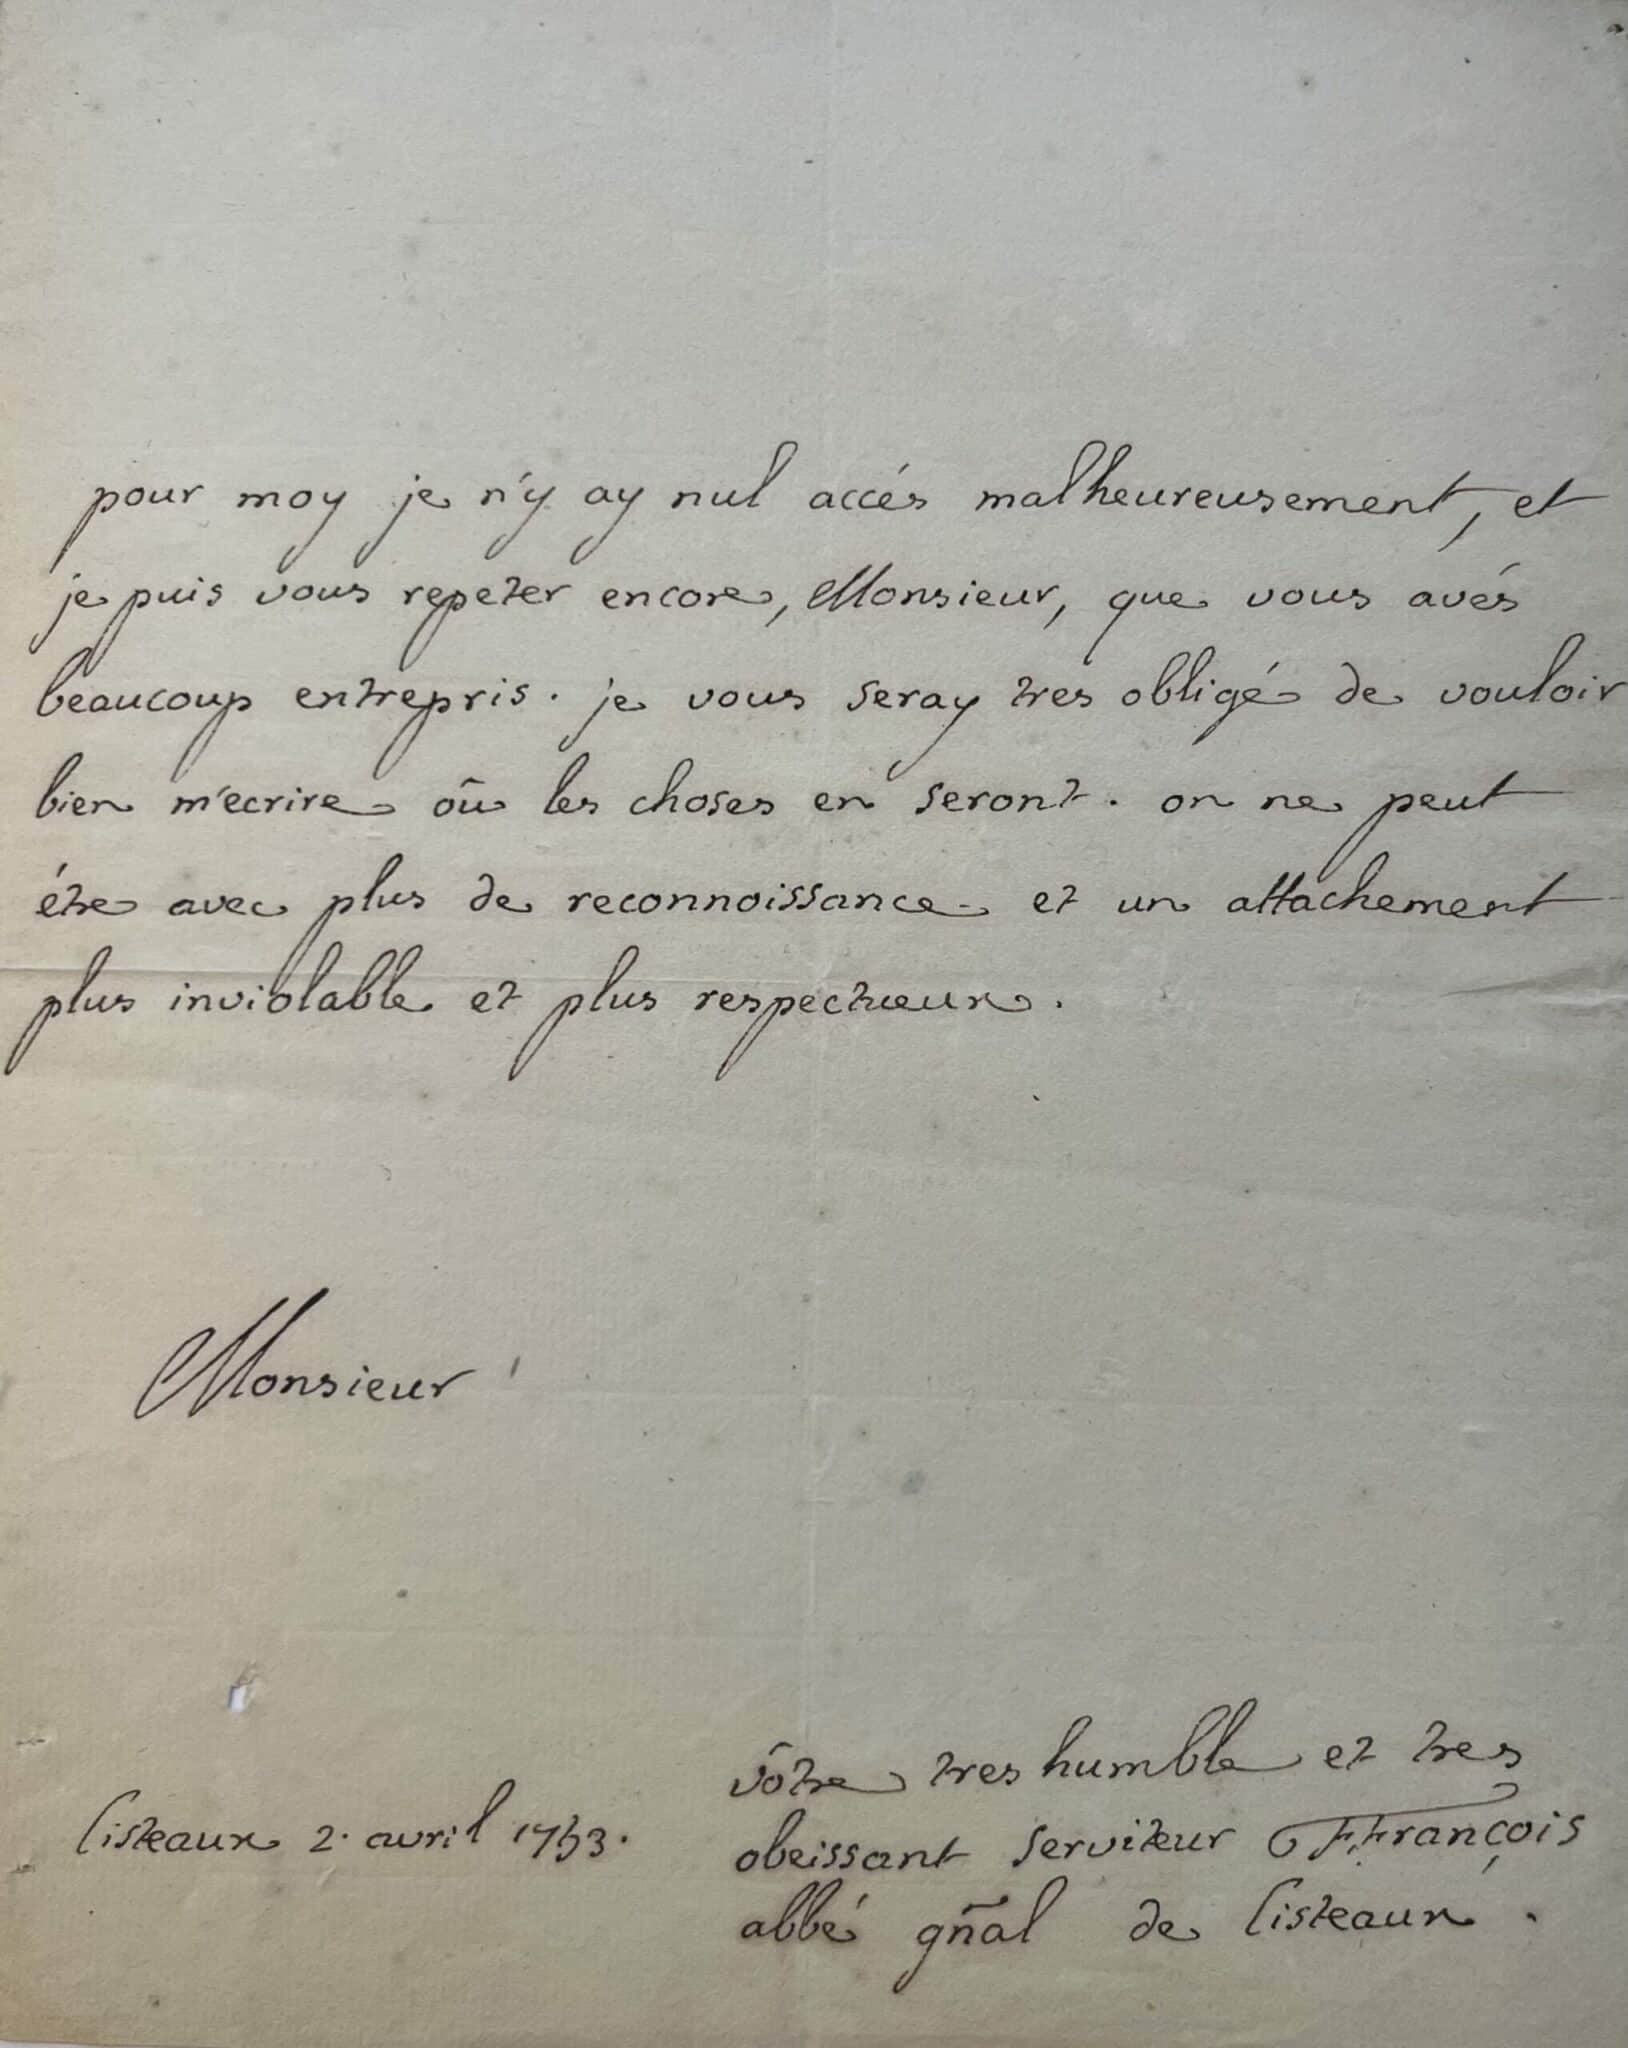 pour moy je n'y ay nul accés malheureusement, et
je puis vous repeter encore, Monsieur, que vous avés
beaucoup entrepris. je vous seray tres obligé de vouloir
bien m'ecrire où les choses en seront. on ne peut
étre avec plus de reconnoissance et un attachement
plus inviolable et plus respectueux.
Monsieur
vôtre tres humble et tres
Cisteaux 2. avril 1753. obeissant serviteur FFrançois
abbé gñal de Cisteaux.